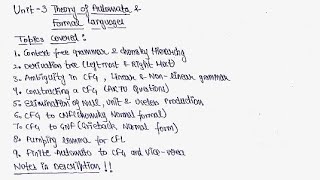 Unit-3 Theory of Automata &
Formal Languages
Topics covered:
1. Context free grammar & chomsky Hierarchy
2. Derivation tree (Leftmost & Right Most)
3. Ambiguity in CFG, Linear & Non-linear grammar
4. Constructing a CFG (AKTU Questions)
5. Elimination of Null, Unit & Useless Production
6. CFG to CNF (Chomsky Normal Form)
7. CFG to GNF (Greibach Normal form)
8. Pumping Lemma for CFL
9. Finite Automata to CFG and Vice-versa
Notes in Description !!